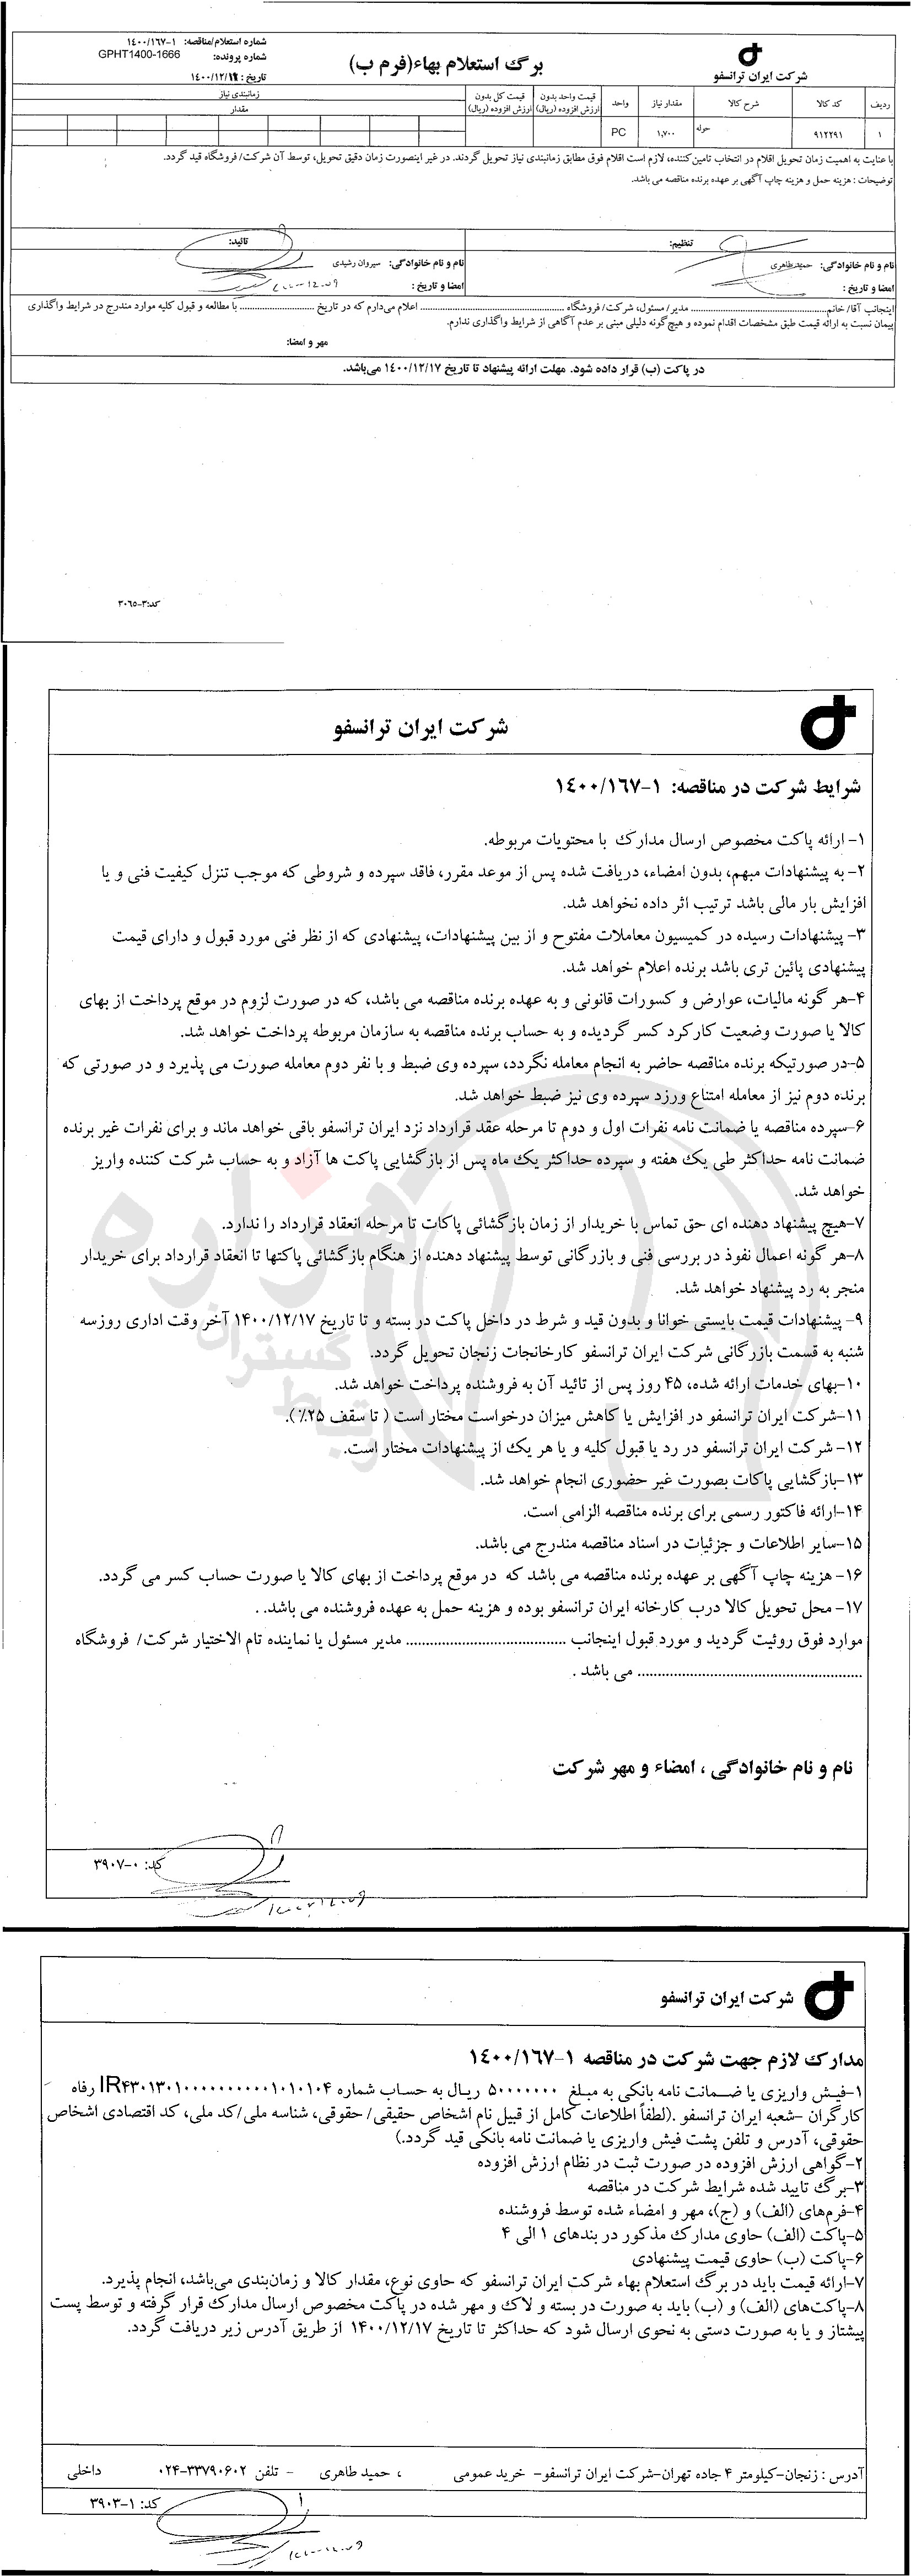 شماره استعلام/مناقصه: ۱-۱۴۰۰/۱۶۷
شماره پرونده: GPHT1400-1666
برگ استعلام بهاء(فرم ب)
شرکت ایران ترانسفو
ردیف
کد کالا
شرح کالا
مقدار نیاز
واحد
قیمت واحد بدون ارزش افزوده (ریال)
قیمت کل بدون ارزش افزوده (ریال)
زمانبندی نیاز
مقدار
۱
۹۱۲۲۹۱
حوله
۱,۷۰۰
PC
با عنایت به اهمیت زمان تحویل اقلام در انتخاب تامین‌کننده، لازم است اقلام فوق مطابق زمانبندی نیاز تحویل گردند. در غیر اینصورت زمان دقیق تحویل، توسط آن شرکت/ فروشگاه قید گردد.
توضیحات : هزینه حمل و هزینه چاپ آگهی بر عهده برنده مناقصه می باشد.
تنظیم:
تائید:
نام و نام خانوادگی: حمید طاهری
نام و نام خانوادگی: سیروان رشیدی
امضا و تاریخ :
امضا و تاریخ :
اینجانب آقا/ خانم.................... مدیر/ مسئول، شرکت/ فروشگاه .................... اعلام می‌دارم که در تاریخ .................... با مطالعه و قبول کلیه موارد مندرج در شرایط واگذاری
پیمان نسبت به ارائه قیمت طبق مشخصات اقدام نموده و هیچ‌گونه دلیلی مبنی بر عدم آگاهی از شرایط واگذاری ندارم.
مهر و امضا:
در پاکت (ب) قرار داده شود. مهلت ارائه پیشنهاد تا تاریخ ۱۴۰۰/۱۲/۱۷ می‌باشد.
کد:۳-۳۰۶۵
شرکت ایران ترانسفو
شرایط شرکت در مناقصه: ۱-۱۴۰۰/۱۶۷
۱- ارائه پاکت مخصوص ارسال مدارک با محتویات مربوطه.
۲- به پیشنهادات مبهم، بدون امضاء، دریافت شده پس از موعد مقرر، فاقد سپرده و شروطی که موجب تنزل کیفیت فنی و یا
افزایش بار مالی باشد ترتیب اثر داده نخواهد شد.
۳- پیشنهادات رسیده در کمیسیون معاملات مفتوح و از بین پیشنهادات، پیشنهادی که از نظر فنی مورد قبول و دارای قیمت
پیشنهادی پائین تری باشد برنده اعلام خواهد شد.
۴-هر گونه مالیات، عوارض و کسورات قانونی و به عهده برنده مناقصه می باشد، که در صورت لزوم در موقع پرداخت از بهای
کالا یا صورت وضعیت کارکرد کسر گردیده و به حساب برنده مناقصه به سازمان مربوطه پرداخت خواهد شد.
۵-در صورتیکه برنده مناقصه حاضر به انجام معامله نگردد، سپرده وی ضبط و با نفر دوم معامله صورت می پذیرد و در صورتی که
برنده دوم نیز از معامله امتناع ورزد سپرده وی نیز ضبط خواهد شد.
۶-سپرده مناقصه یا ضمانت نامه نفرات اول و دوم تا مرحله عقد قرارداد نزد ایران ترانسفو باقی خواهد ماند و برای نفرات غیر برنده
ضمانت نامه حداکثر طی یک هفته و سپرده حداکثر یک ماه پس از بازگشایی پاکت ها آزاد و به حساب شرکت کننده واریز
خواهد شد.
۷-هیچ پیشنهاد دهنده ای حق تماس با خریدار از زمان بازگشائی پاکات تا مرحله انعقاد قرارداد را ندارد.
۸-هر گونه اعمال نفوذ در بررسی فنی و بازرگانی توسط پیشنهاد دهنده از هنگام بازگشائی پاکتها تا انعقاد قرارداد برای خریدار
منجر به رد پیشنهاد خواهد شد.
۹- پیشنهادات قیمت بایستی خوانا و بدون قید و شرط در داخل پاکت در بسته و تا تاریخ ۱۴۰۰/۱۲/۱۷ آخر وقت اداری روزسه
شنبه به قسمت بازرگانی شرکت ایران ترانسفو کارخانجات زنجان تحویل گردد.
۱۰-بهای خدمات ارائه شده، ۴۵ روز پس از تائید آن به فروشنده پرداخت خواهد شد.
۱۱-شرکت ایران ترانسفو در افزایش یا کاهش میزان درخواست مختار است ( تا سقف ۲۵٪).
۱۲- شرکت ایران ترانسفو در رد یا قبول کلیه و یا هر یک از پیشنهادات مختار است.
۱۳-بازگشایی پاکات بصورت غیر حضوری انجام خواهد شد.
۱۴-ارائه فاکتور رسمی برای برنده مناقصه الزامی است.
۱۵-سایر اطلاعات و جزئیات در اسناد مناقصه مندرج می باشد.
۱۶- هزینه چاپ آگهی بر عهده برنده مناقصه می باشد که در موقع پرداخت از بهای کالا یا صورت حساب کسر می گردد.
۱۷- محل تحویل کالا درب کارخانه ایران ترانسفو بوده و هزینه حمل به عهده فروشنده می باشد. .
موارد فوق روئیت گردید و مورد قبول اینجانب .................... مدیر مسئول یا نماینده تام الاختیار شرکت/ فروشگاه
.................... می باشد .
نام و نام خانوادگی ، امضاء و مهر شرکت
کد: ۰-۳۹۰۷
شرکت ایران ترانسفو
مدارک لازم جهت شرکت در مناقصه ۱-۱۴۰۰/۱۶۷
۱-فیش واریزی یا ضمانت نامه بانکی به مبلغ ۵۰۰۰۰۰۰۰ ریال به حساب شماره IR۴۳۰۱۳۰۱۰۰۰۰۰۰۰۰۰۰۱۰۱۰۱۰۴ رفاه
کارگران -شعبه ایران ترانسفو .(لطفاً اطلاعات کامل از قبیل نام اشخاص حقیقی/ حقوقی، شناسه ملی/کد ملی، کد اقتصادی اشخاص
حقوقی، آدرس و تلفن پشت فیش واریزی یا ضمانت نامه بانکی قید گردد.)
۲-گواهی ارزش افزوده در صورت ثبت در نظام ارزش افزوده
۳-برگ تایید شده شرایط شرکت در مناقصه
۴-فرم‌های (الف) و (ج)، مهر و امضاء شده توسط فروشنده
۵-پاکت (الف) حاوی مدارک مذکور در بندهای ۱ الی ۴
۶-پاکت (ب) حاوی قیمت پیشنهادی
۷-ارائه قیمت باید در برگ استعلام بهاء شرکت ایران ترانسفو که حاوی نوع، مقدار کالا و زمان‌بندی می‌باشد، انجام پذیرد.
۸-پاکت‌های (الف) و (ب) باید به صورت در بسته و لاک و مهر شده در پاکت مخصوص ارسال مدارک قرار گرفته و توسط پست
پیشتاز و یا به صورت دستی به نحوی ارسال شود که حداکثر تا تاریخ ۱۴۰۰/۱۲/۱۷ از طریق آدرس زیر دریافت گردد.
آدرس : زنجان-کیلومتر ۴ جاده تهران-شرکت ایران ترانسفو- خرید عمومی ، حمید طاهری - تلفن ۳۳۷۹۰۶۰۲-۰۲۴ داخلی
کد: ۱-۳۹۰۳